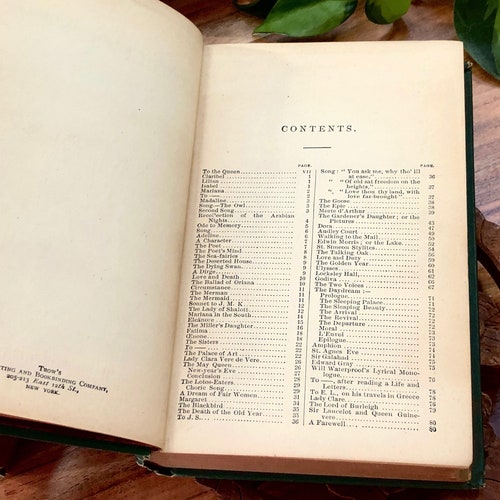 Trow's
TING AND BOOKBINDING COMPANY,
205-213 East 12th St.,
NEW YORK.
CONTENTS.
PAGE.
To the Queen VII
Claribel 1
Lilian 1
Isabel 1
Mariana
To
Madaline
Song—The Owl
Second Song 3
Recollection of the Arabian
Nights 4
Ode to Memory 5
Song
Adeline
A Character
The Poet
The Poet's Mind
The Sea-fairies
The Deserted House
The Dying Swan
A Dirge
Love and Death
The Ballad of Oriana 10
Circumstance 11
The Merman
The Mermaid
Sonnet to J. M. K.
The Lady of Shalott
Mariana in the South
Eleänore
The Miller's Daughter
Fatima
Œnone
The Sisters
To —
The Palace of Art
Lady Clara Vere de Vere
The May Queen
New-year's Eve
Conclusion
The Lotos-Eaters
Choric Song
A Dream of Fair Women
Margaret
The Blackbird
The Death of the Old Year 35
To J. S. 36
PAGE.
Song: "You ask me, why tho' ill
at ease," 36
" "Of old sat freedom on the
heights," 37
" "Love thou thy land, with
love far-brought" 37
The Goose
The Epic
Morte d'Arthur
The Gardener's Daughter; or the
Pictures
Dora
Audley Court
Walking to the Mail
Edwin Morris; or the Lake
St. Simeon Stylites
The Talking Oak
Love and Duty
The Golden Year
Ulysses
Locksley Hall
Godiva
The Two Voices 67
The Daydream:—
Prologue 71
The Sleeping Palace
The Sleeping Beauty
The Arrival
The Revival
The Departure
Moral
L'Envoi
Epilogue
Amphion
St. Agnes Eve
Sir Galahad
Edward Gray
Will Waterproof's Lyrical Monologue
To —, after reading a Life and
Letters 78
To E. L., on his travels in Greece 78
Lady Clare 78
The Lord of Burleigh 79
Sir Launcelot and Queen Guinevere 80
A Farewell 80